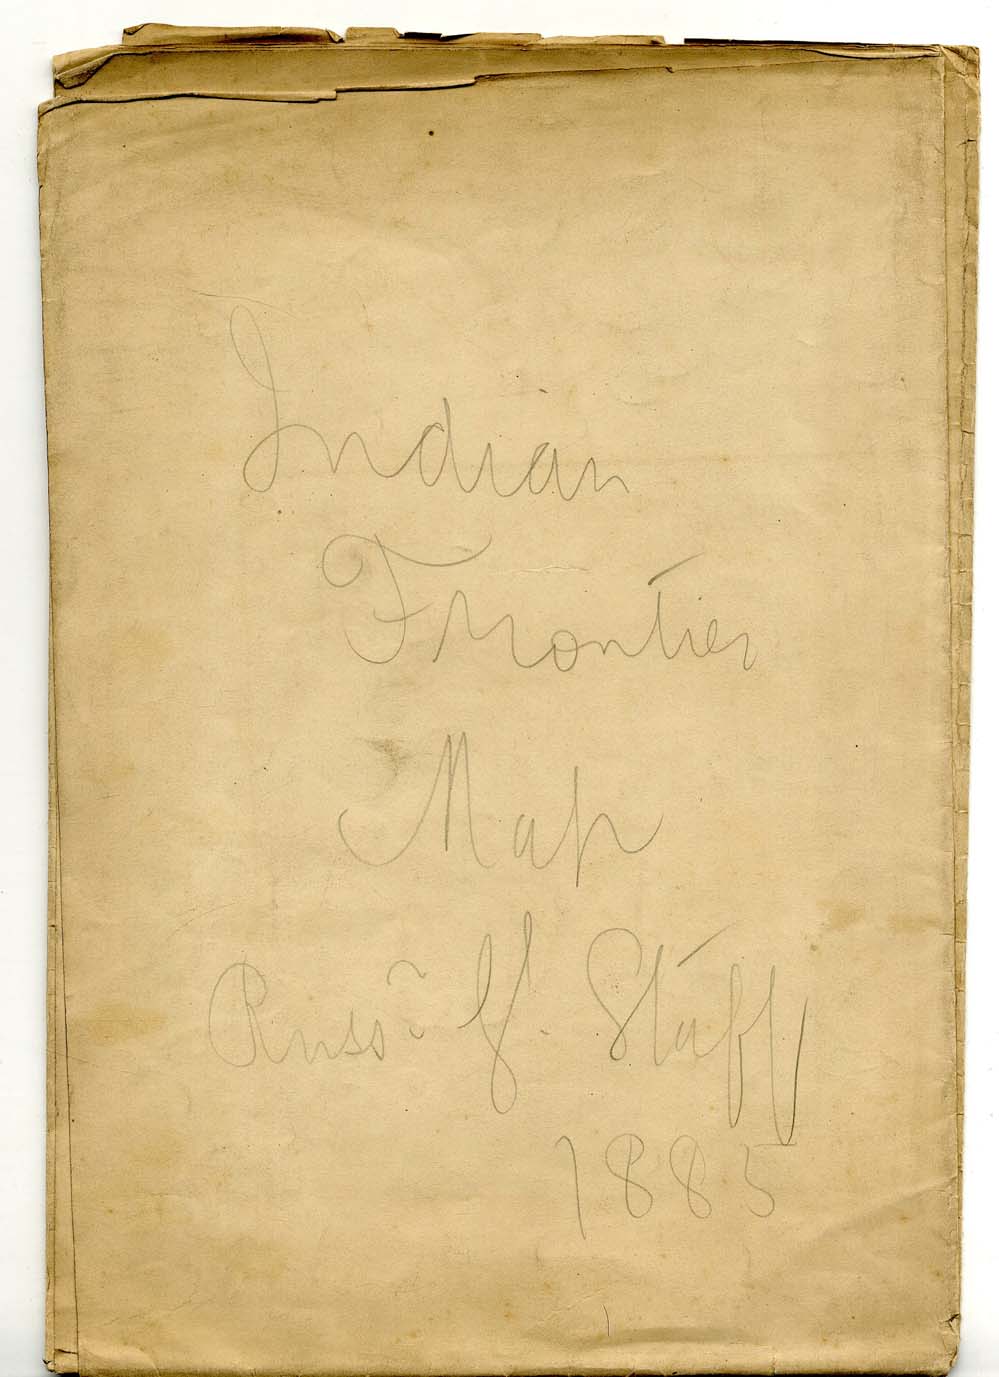 Indian
Frontier
Map
Russn G. Staff
1885